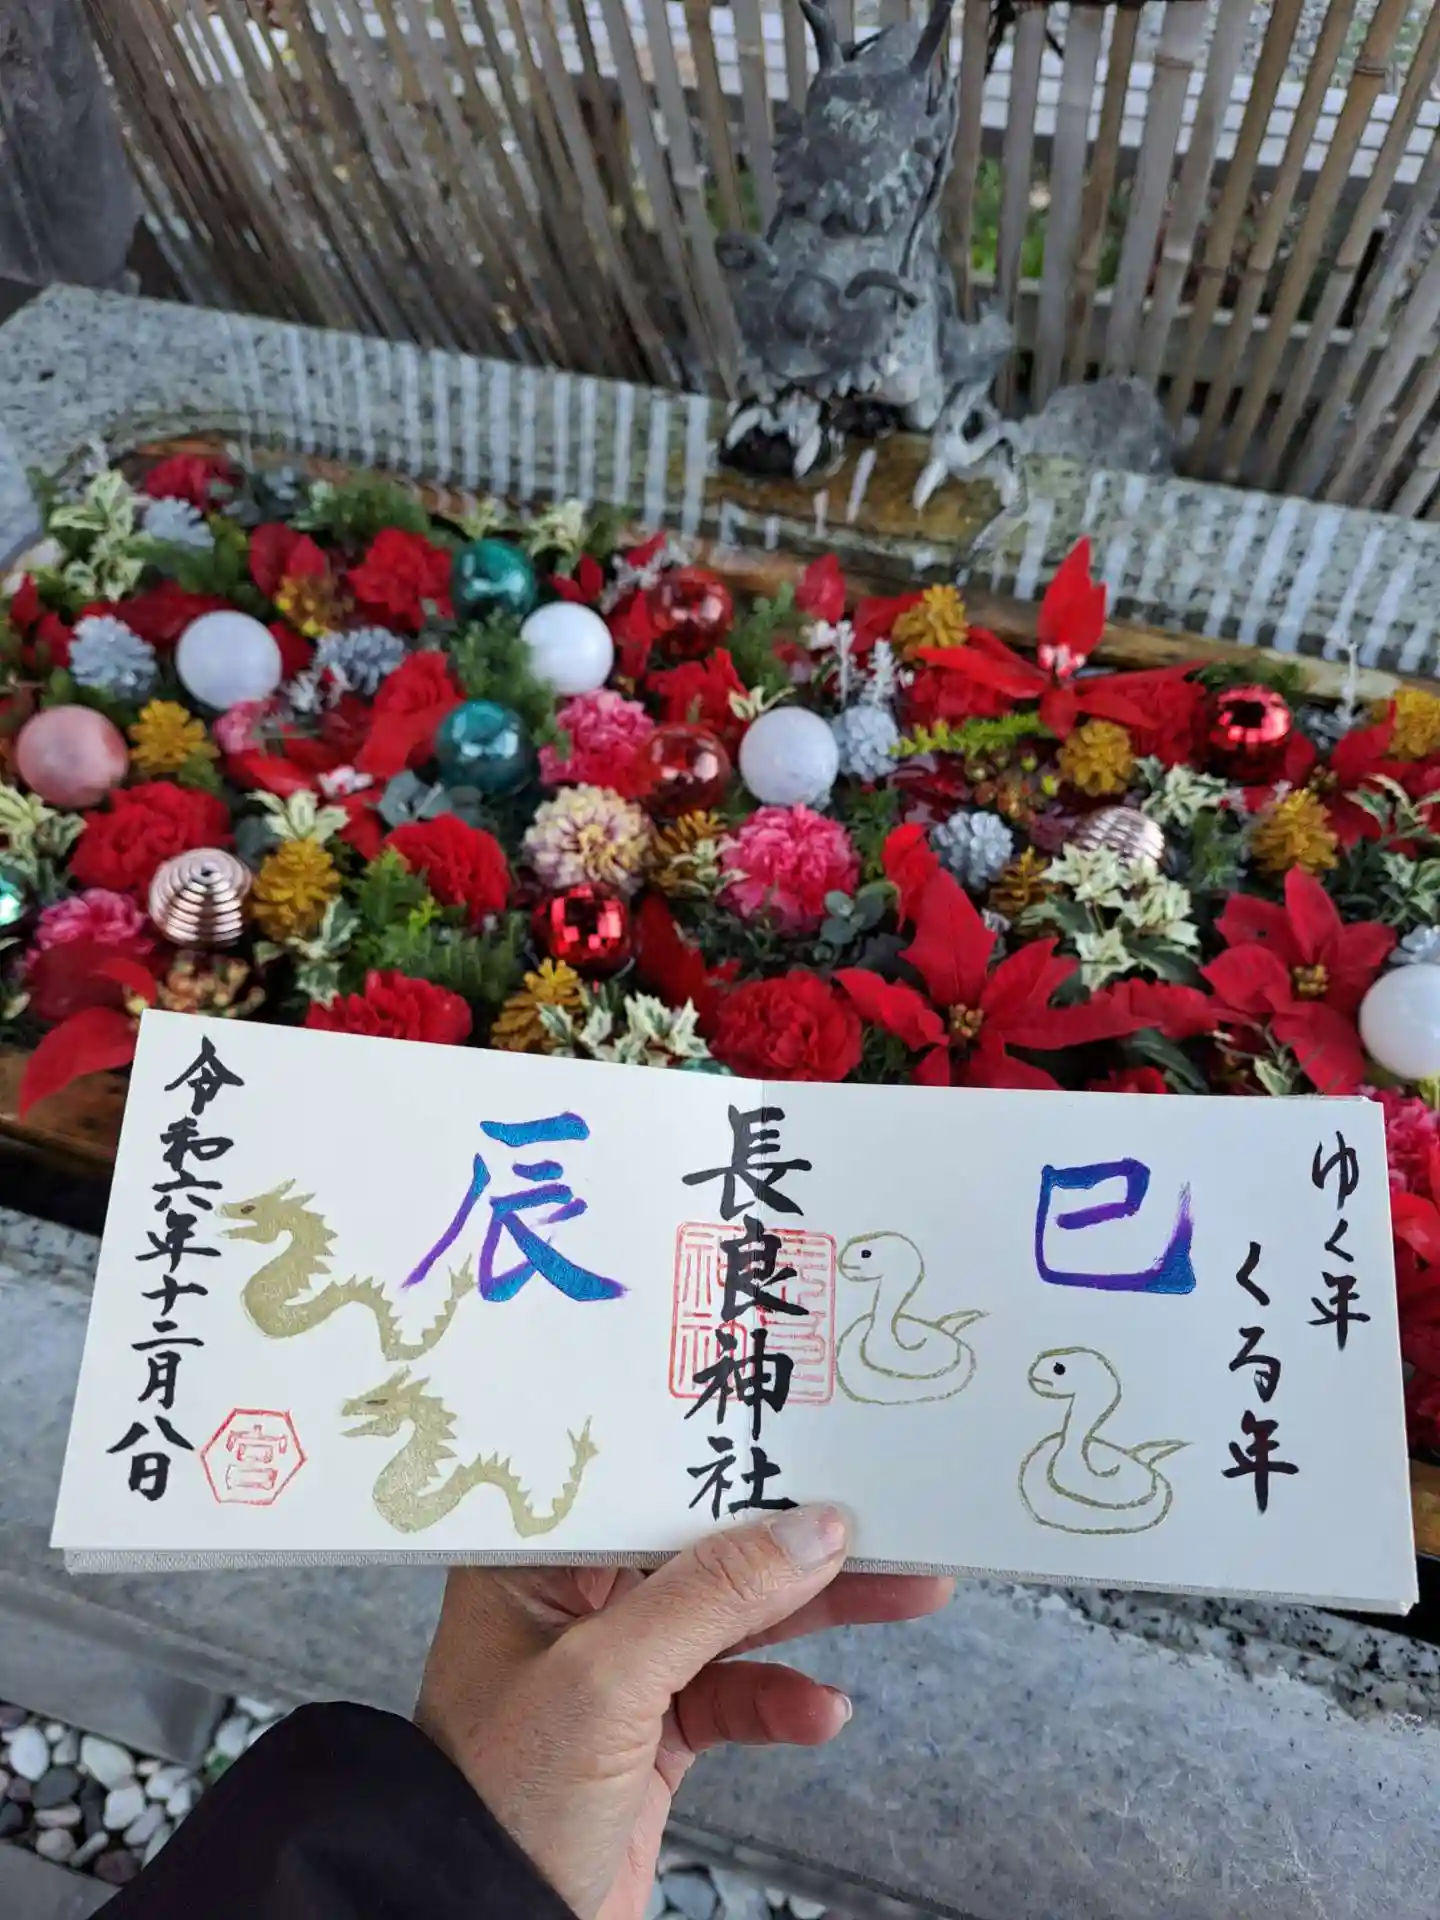 ゆく年
くる年
巳
長良神社
辰
令和六年十二月八日
宮